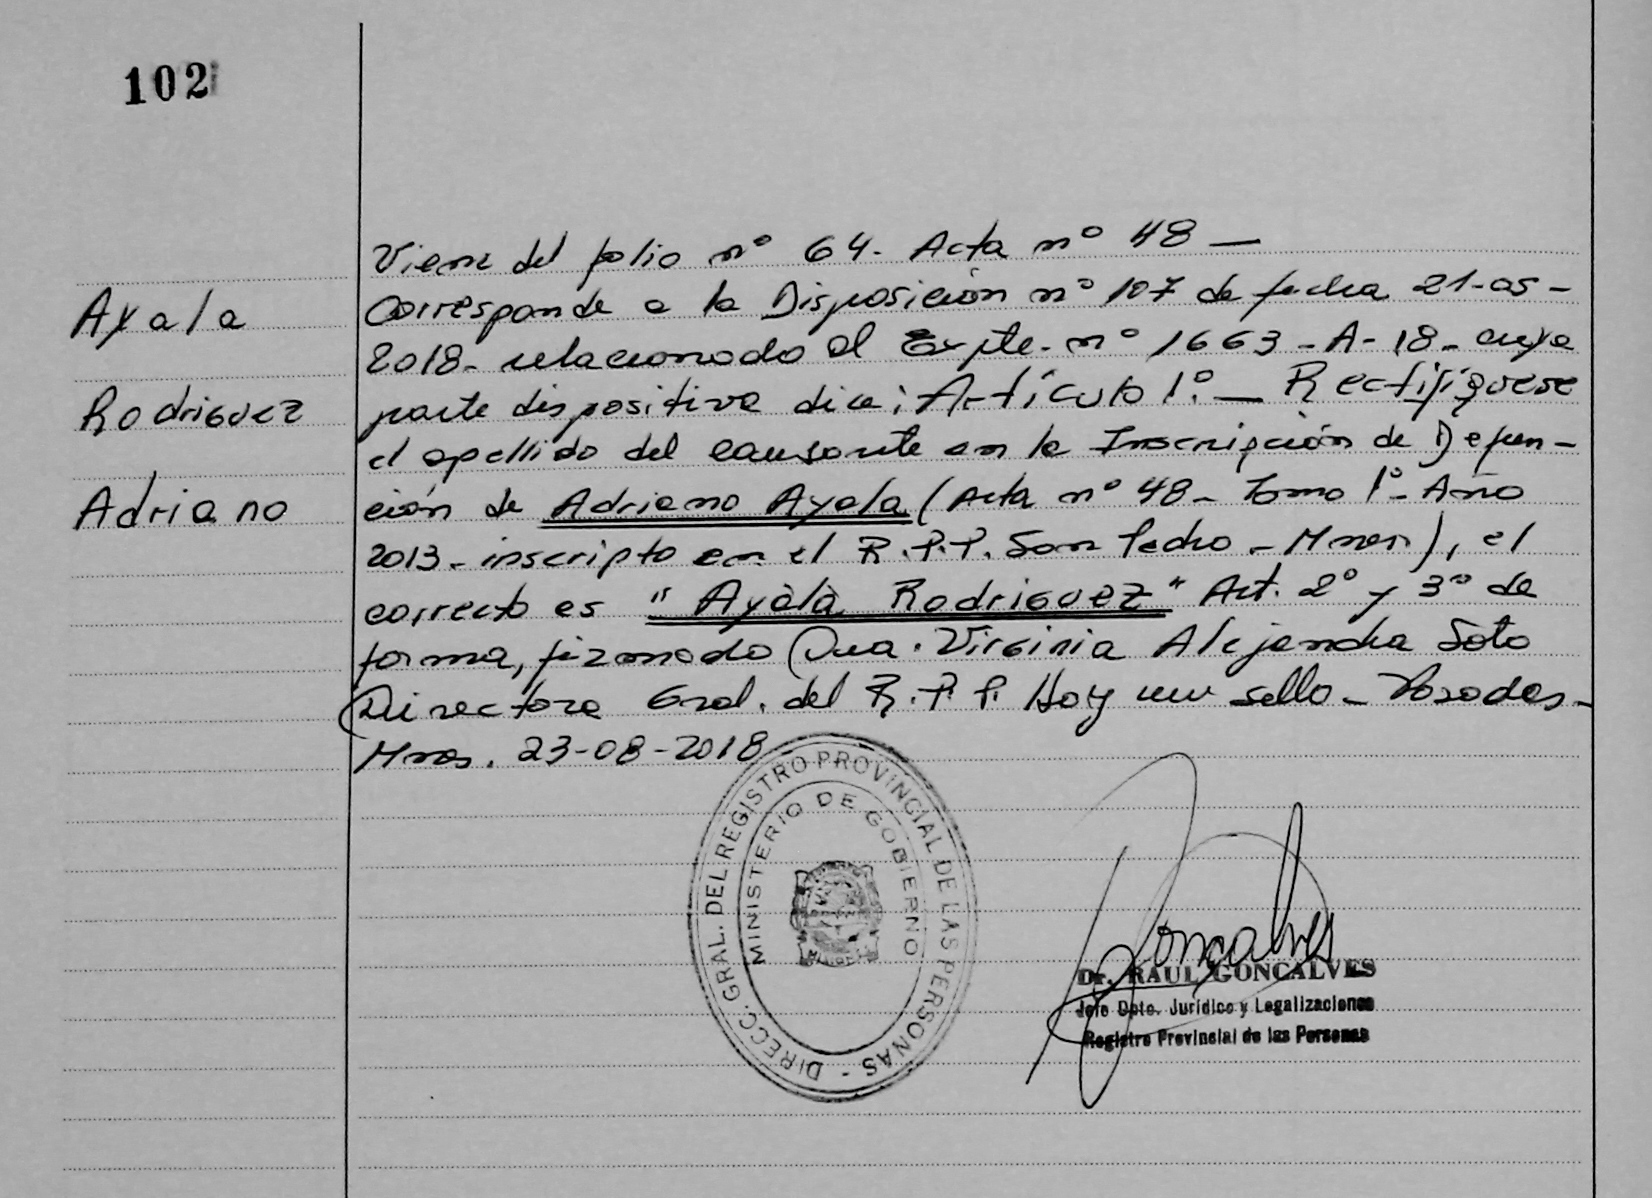 102
Ayala
Rodriguez
Adriano
Viene del folio nº 64- Acta nº 48 —
Corresponde a la Disposición nº 107 de fecha 21-05-
2018- relacionado al Expte. nº 1663-A-18- cuya
parte dispositiva dice: Artículo 1º.— Rectifíquese
el apellido del causante en la Inscripción de Defun-
ción de Adriano Ayala (Acta nº 48- Tomo 1º- Año
2013- inscripto en el R.P.P. San Pedro - Mnes), el
correcto es "Ayala Rodriguez" Art. 2º y 3º de
forma, firmado Dra. Virginia Alejandra Soto
Directora Gral. del R.P.P. Hay un sello- Posadas-
Mnes. 23-08-2018
DIRECC. GRAL. DEL REGISTRO PROVINCIAL DE LAS PERSONAS -
MINISTERIO DE GOBIERNO
Goncalves
Dr. RAUL GONCALVES
Jefe Dpto. Jurídico y Legalizaciones
Registro Provincial de las Personas